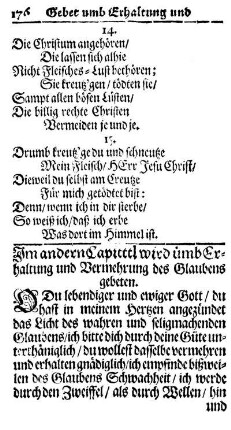 176 Gebet umb Erhaltung und
14.
Die Christum angehören/
Die lassen sich albie
Nicht Fleisches-Lust bethören;
Sie kreutz'gen/ tödten sie/
Sampt allen bösen Lüsten/
Die billig rechte Christen
Vermeiden je und je.
15.
Drumb kreutz'ge du und schneutze
Mein Fleisch/ HErr Jesu Christ/
Dieweil du selbst am Creutze
Für mich getödtet bist:
Denn/ wenn ich in dir sterbe/
So weiß ich/ daß ich erbe
Was dort im Himmel ist.
Im andern Capittel wird umb Er-
haltung und Vermehrung des Glaubens
gebeten.
O Du lebendiger und ewiger Gott/ du
hast in meinem Hertzen angezündet
das Licht des wahren und seligmachenden
Glaubens/ ich bitte dich durch deine Güte un-
terthäniglich/ du wollest dasselbe vermehren
und erhalten gnädiglich/ ich empfinde bißwei-
len des Glaubens Schwachheit/ ich werde
durch den Zweiffel/ als durch Wellen/ hin
und